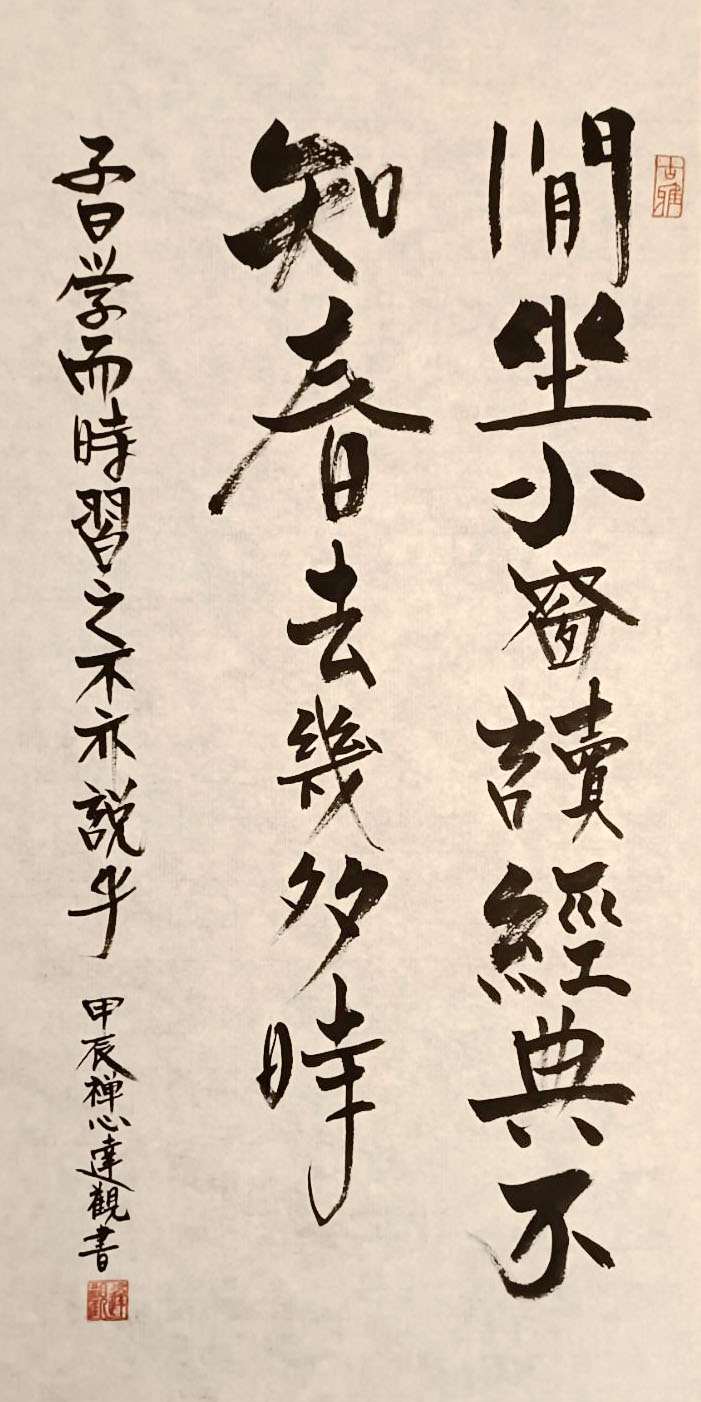 閒坐小窗讀經典不
知春去幾多時
子曰学而時習之不亦說乎
甲辰禅心達觀書
古雅
達觀